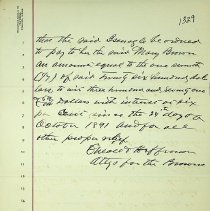 1329
that the said Osenogle be ordered
to pay to her the said Mary Brown
an amount equal to the one seventh
(1/7) of said Twenty six hundred dol
lars, to wit three hundred and seventy one
Dollars with interest at six
per Cent since the 28th day of
October 1891 and for all
other proper relief
Attys for the Browns